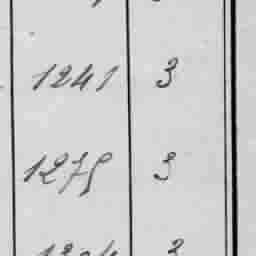 1241 3
1275 3